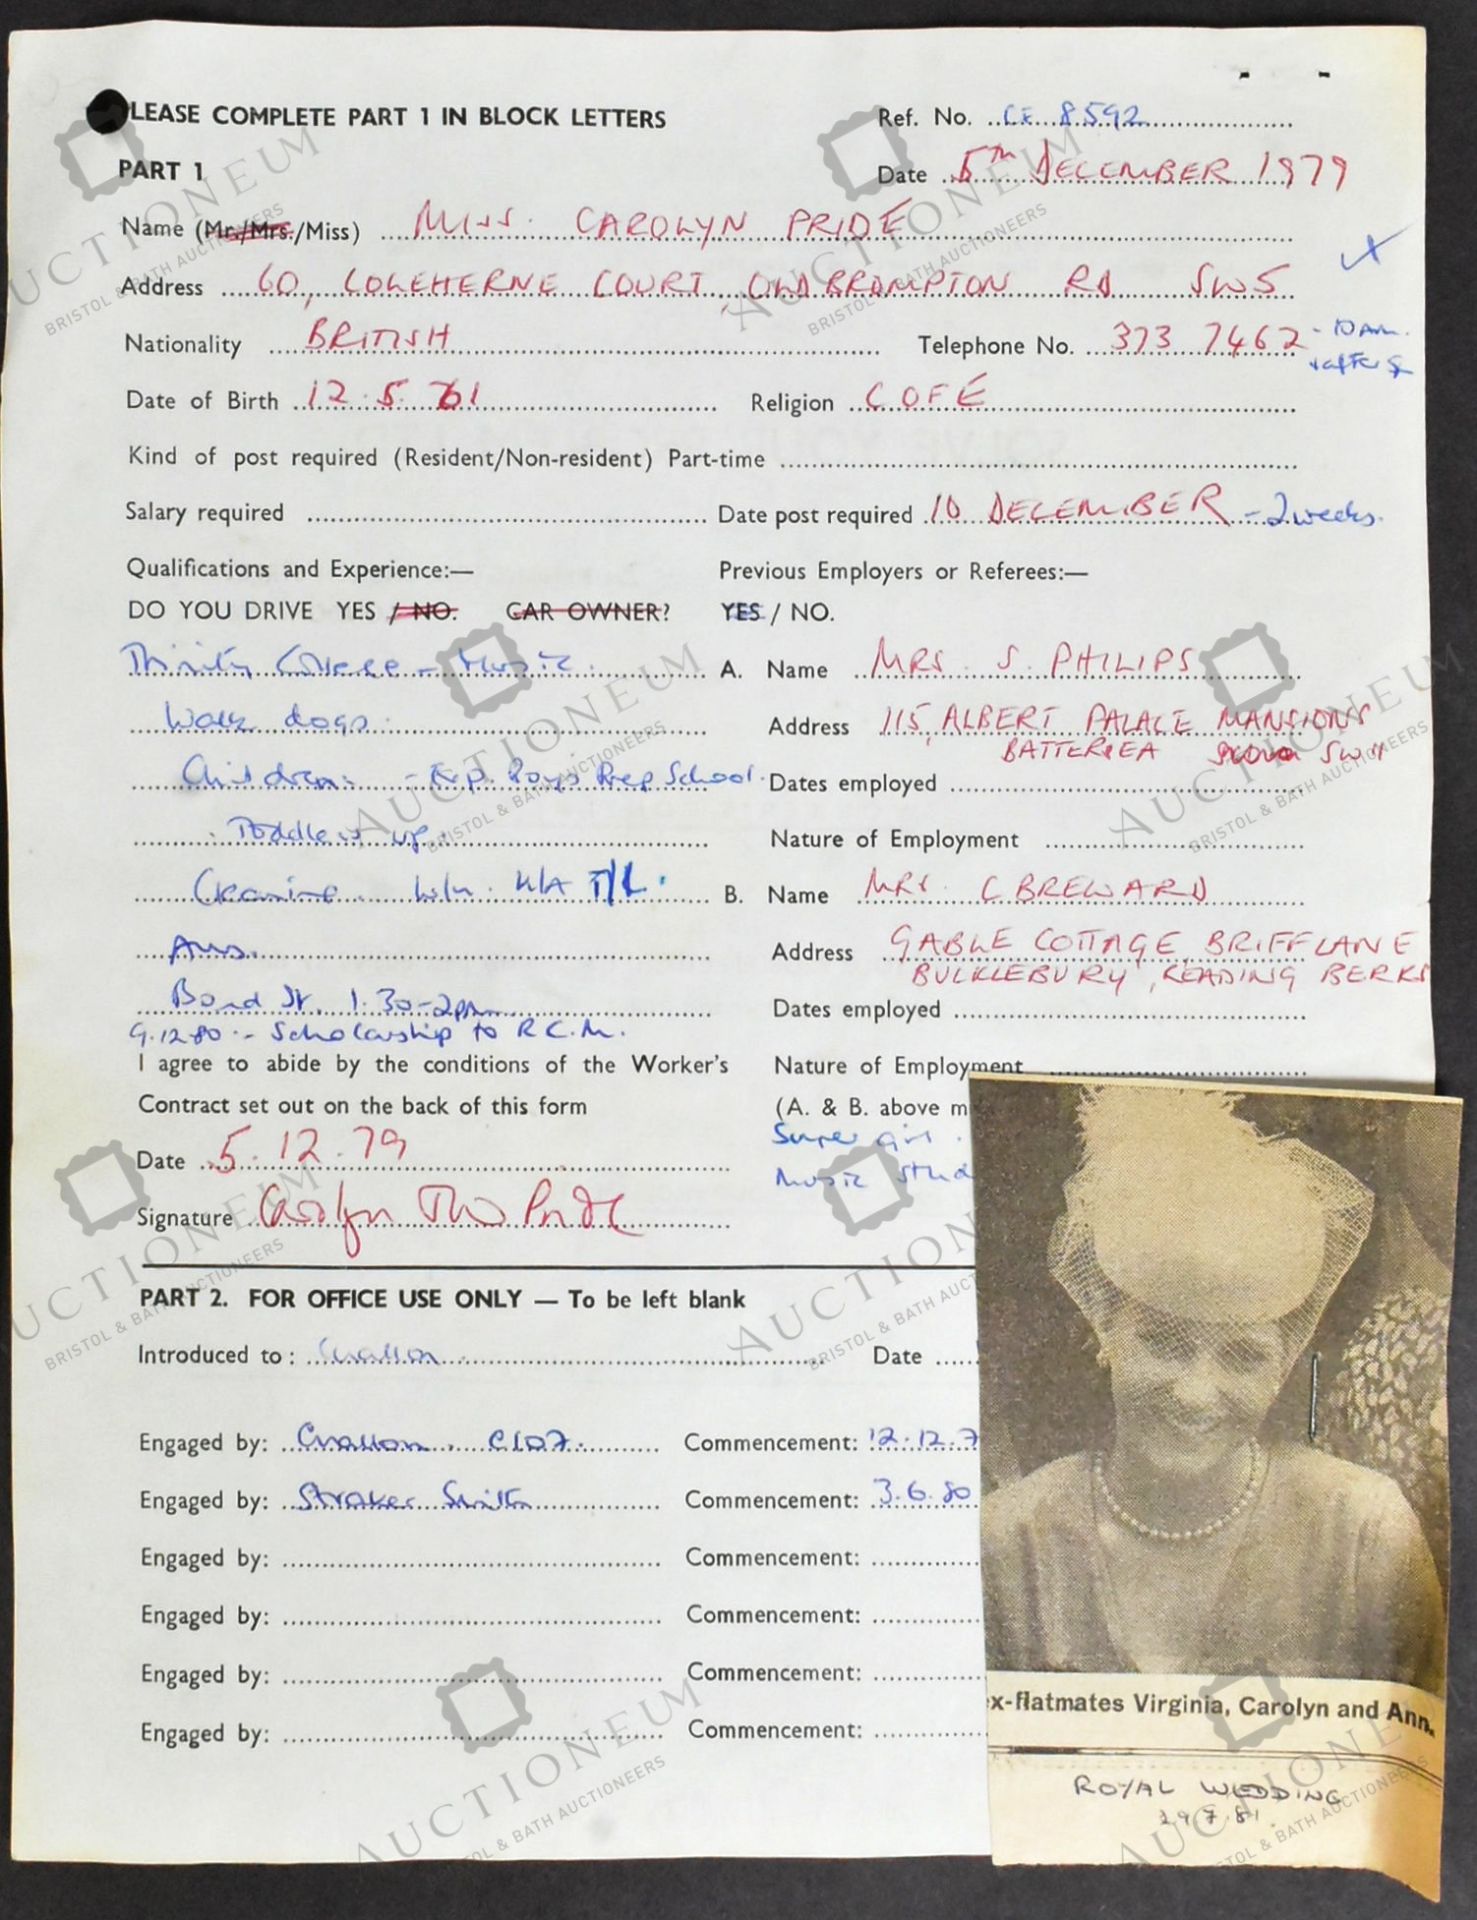 PLEASE COMPLETE PART 1 IN BLOCK LETTERS
Ref. No. CE 8592
PART 1
Date 5TH DECEMBER 1979
Name (Mr./Mrs./Miss) MISS. CAROLYN PRIDE
Address 60, COLEHERNE COURT, OLD BROMPTON RD SW5
Nationality BRITISH
Telephone No. 373 7462 - 10 am.
+ after
Date of Birth 12.5.61
Religion C OF E
Kind of post required (Resident/Non-resident) Part-time
Salary required
Date post required 10 DECEMBER - 2 weeks.
Qualifications and Experience:—
Previous Employers or Referees:—
DO YOU DRIVE YES / NO. CAR OWNER? YES / NO.
Trinity College - Music.
A. Name MRS. S. PHILIPS
Walk dogs.
Address 115, ALBERT PALACE MANSIONS
BATTERSEA SW11
Children: - Exp. Boys Prep School.
Dates employed
Toddlers up.
Nature of Employment
Cleaning.
B. Name MRS. C BREWARD
Address GABLE COTTAGE, BRIFF LANE
BUCKLEBURY, READING BERKS
Bond St. 1.30-2pm
Dates employed
9.12.80 - Scholarship to R.C.M.
I agree to abide by the conditions of the Worker's
Nature of Employment
Contract set out on the back of this form
(A. & B. above m
Super girl.
Date 5.12.79
Music stud
Signature Carolyn Pride
PART 2. FOR OFFICE USE ONLY — To be left blank
Introduced to:
Date
Engaged by: C107.
Commencement: 12.12.7
Engaged by: Straker Smith
Commencement: 3.6.80
Engaged by:
Commencement:
Engaged by:
Commencement:
Engaged by:
Commencement:
Engaged by:
Commencement:
ex-flatmates Virginia, Carolyn and Ann.
ROYAL WEDDING
29.7.81.
AUCTIONEUM
BRISTOL & BATH AUCTIONEERS